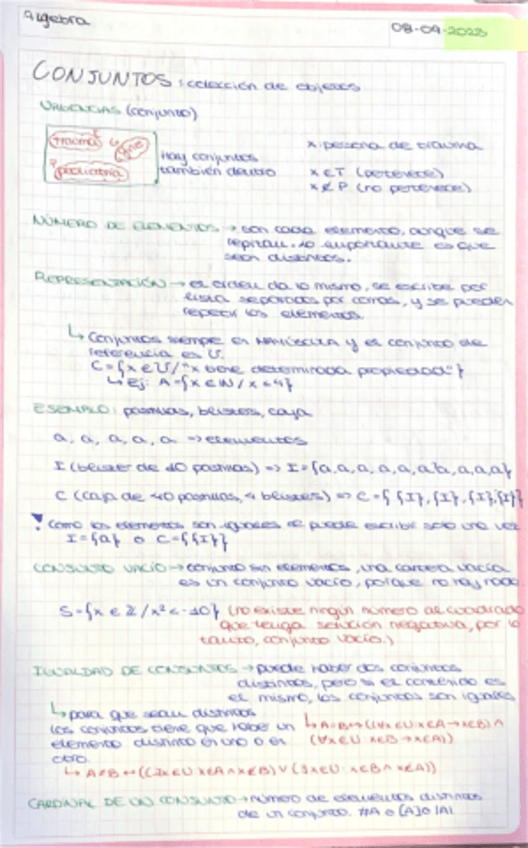 Algebra
08-09-2023
CONJUNTOS: colección de objetos
URGENCIAS (conjunto)
trauma
pediatría
Hay conjuntos
también dentro
x: persona de trauma
x ∈ T (pertenece)
x ∉ P (no pertenece)
NÚMERO DE ELEMENTOS → son cada elemento, aunque se
repitan. lo importante es que
sean distintos.
REPRESENTACIÓN → el orden da lo mismo, se escribe por
lista separados por comas, y se pueden
repetir los elementos.
↳ Conjuntos siempre en MAYÚSCULA y el conjunto de
referencia es U.
C = {x ∈ U / "x tiene determinada propiedad"}
↳ Ej: A = {x ∈ N / x < 4}
EJEMPLO: pastillas, blisters, caja
a, a, a, a, a => elementos
I (blister de 10 pastillas) => I = {a, a, a, a, a, a, a, a, a}
C (caja de 40 pastillas, 4 blisters) => C = { {I}, {I}, {I}, {I} }
Como los elementos son iguales se puede escribir solo una vez
I = {a} o C = {{I}}
CONJUNTO VACÍO → conjunto sin elementos, una cartera vacía
es un conjunto vacío, porque no hay nada
S = {x ∈ Z / x² < -10} (no existe ningún número al cuadrado
que tenga solución negativa, por lo
tanto, conjunto vacío.)
IGUALDAD DE CONJUNTOS → puede haber dos conjuntos
distintos, pero si el contenido es
el mismo, los conjuntos son iguales
↳ para que sean distintos
los conjuntos tiene que haber un
elemento distinto en uno o en
otro.
↳ A=B ↔ ((∀x ∈ U x∈A → x∈B) ∧
(∀x ∈ U x∈B → x∈A))
↳ A≠B ↔ ((∃x ∈ U x∈A ∧ x∉B) ∨ (∃x ∈ U · x∈B ∧ x∉A))
CARDINAL DE UN CONJUNTO → número de elementos distintos
de un conjunto. #A o [A] o |A|